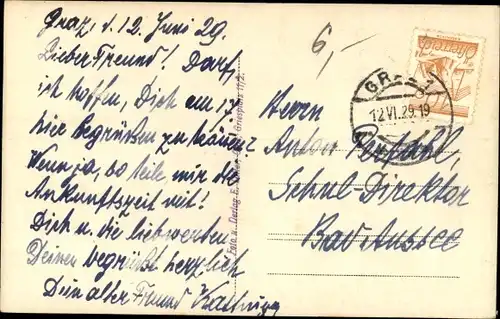 Graz, d. 12. Juni 29.
Lieber Freund! Darf
ich hoffen, Dich am 17.
hier begrüßen zu können?
Wenn ja, so teile mir die
Ankunftszeit mit!
Dich u. die liebwerten
Deinen begrüßt herzlich
Dein alter Freund
6,-
Österreich
GR
12.VI.29.19
Herrn
Anton
Schul Direktor
Bad Aussee
Foto u. Verlag E. Griesplatz 11/2.